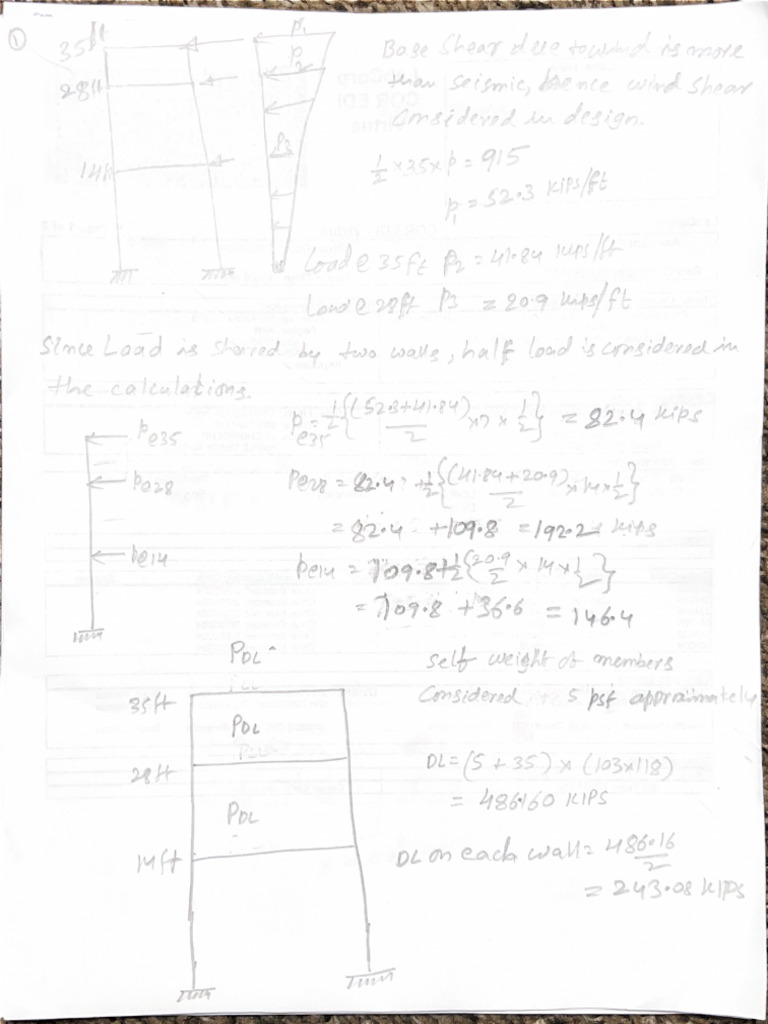 ①
35ft
28ft
14ft
P1
P2
P3
Base Shear due to wind is more
than seismic, hence wind shear
Considered in design.
1/2 x 35 x P = 915
P1 = 52.3 kips/ft
Load @ 35ft P2 = 41.84 kips/ft
Load @ 28ft P3 = 20.9 kips/ft
Since Load is shared by two walls, half load is considered in
the calculations.
Pe35
Pe28
Pe14
Pe35 = 1/2 {(52.3+41.84)/2 x 7 x 1/2} = 82.4 kips
Pe28 = 82.4 + 1/2 {(41.84+20.9)/2 x 14 x 1/2}
= 82.4 + 109.8 = 192.2 kips
Pe14 = 109.8 + 1/2 {20.9/2 x 14 x 1/2}
= 109.8 + 36.6 = 146.4
PDL
35ft
PDL
28ft
PDL
14ft
self weight of members
Considered 5 psf approximately
DL = (5 + 35) x (103x118)
= 486.160 KIPS
DL on each wall = 486.16/2
= 243.08 KIPS